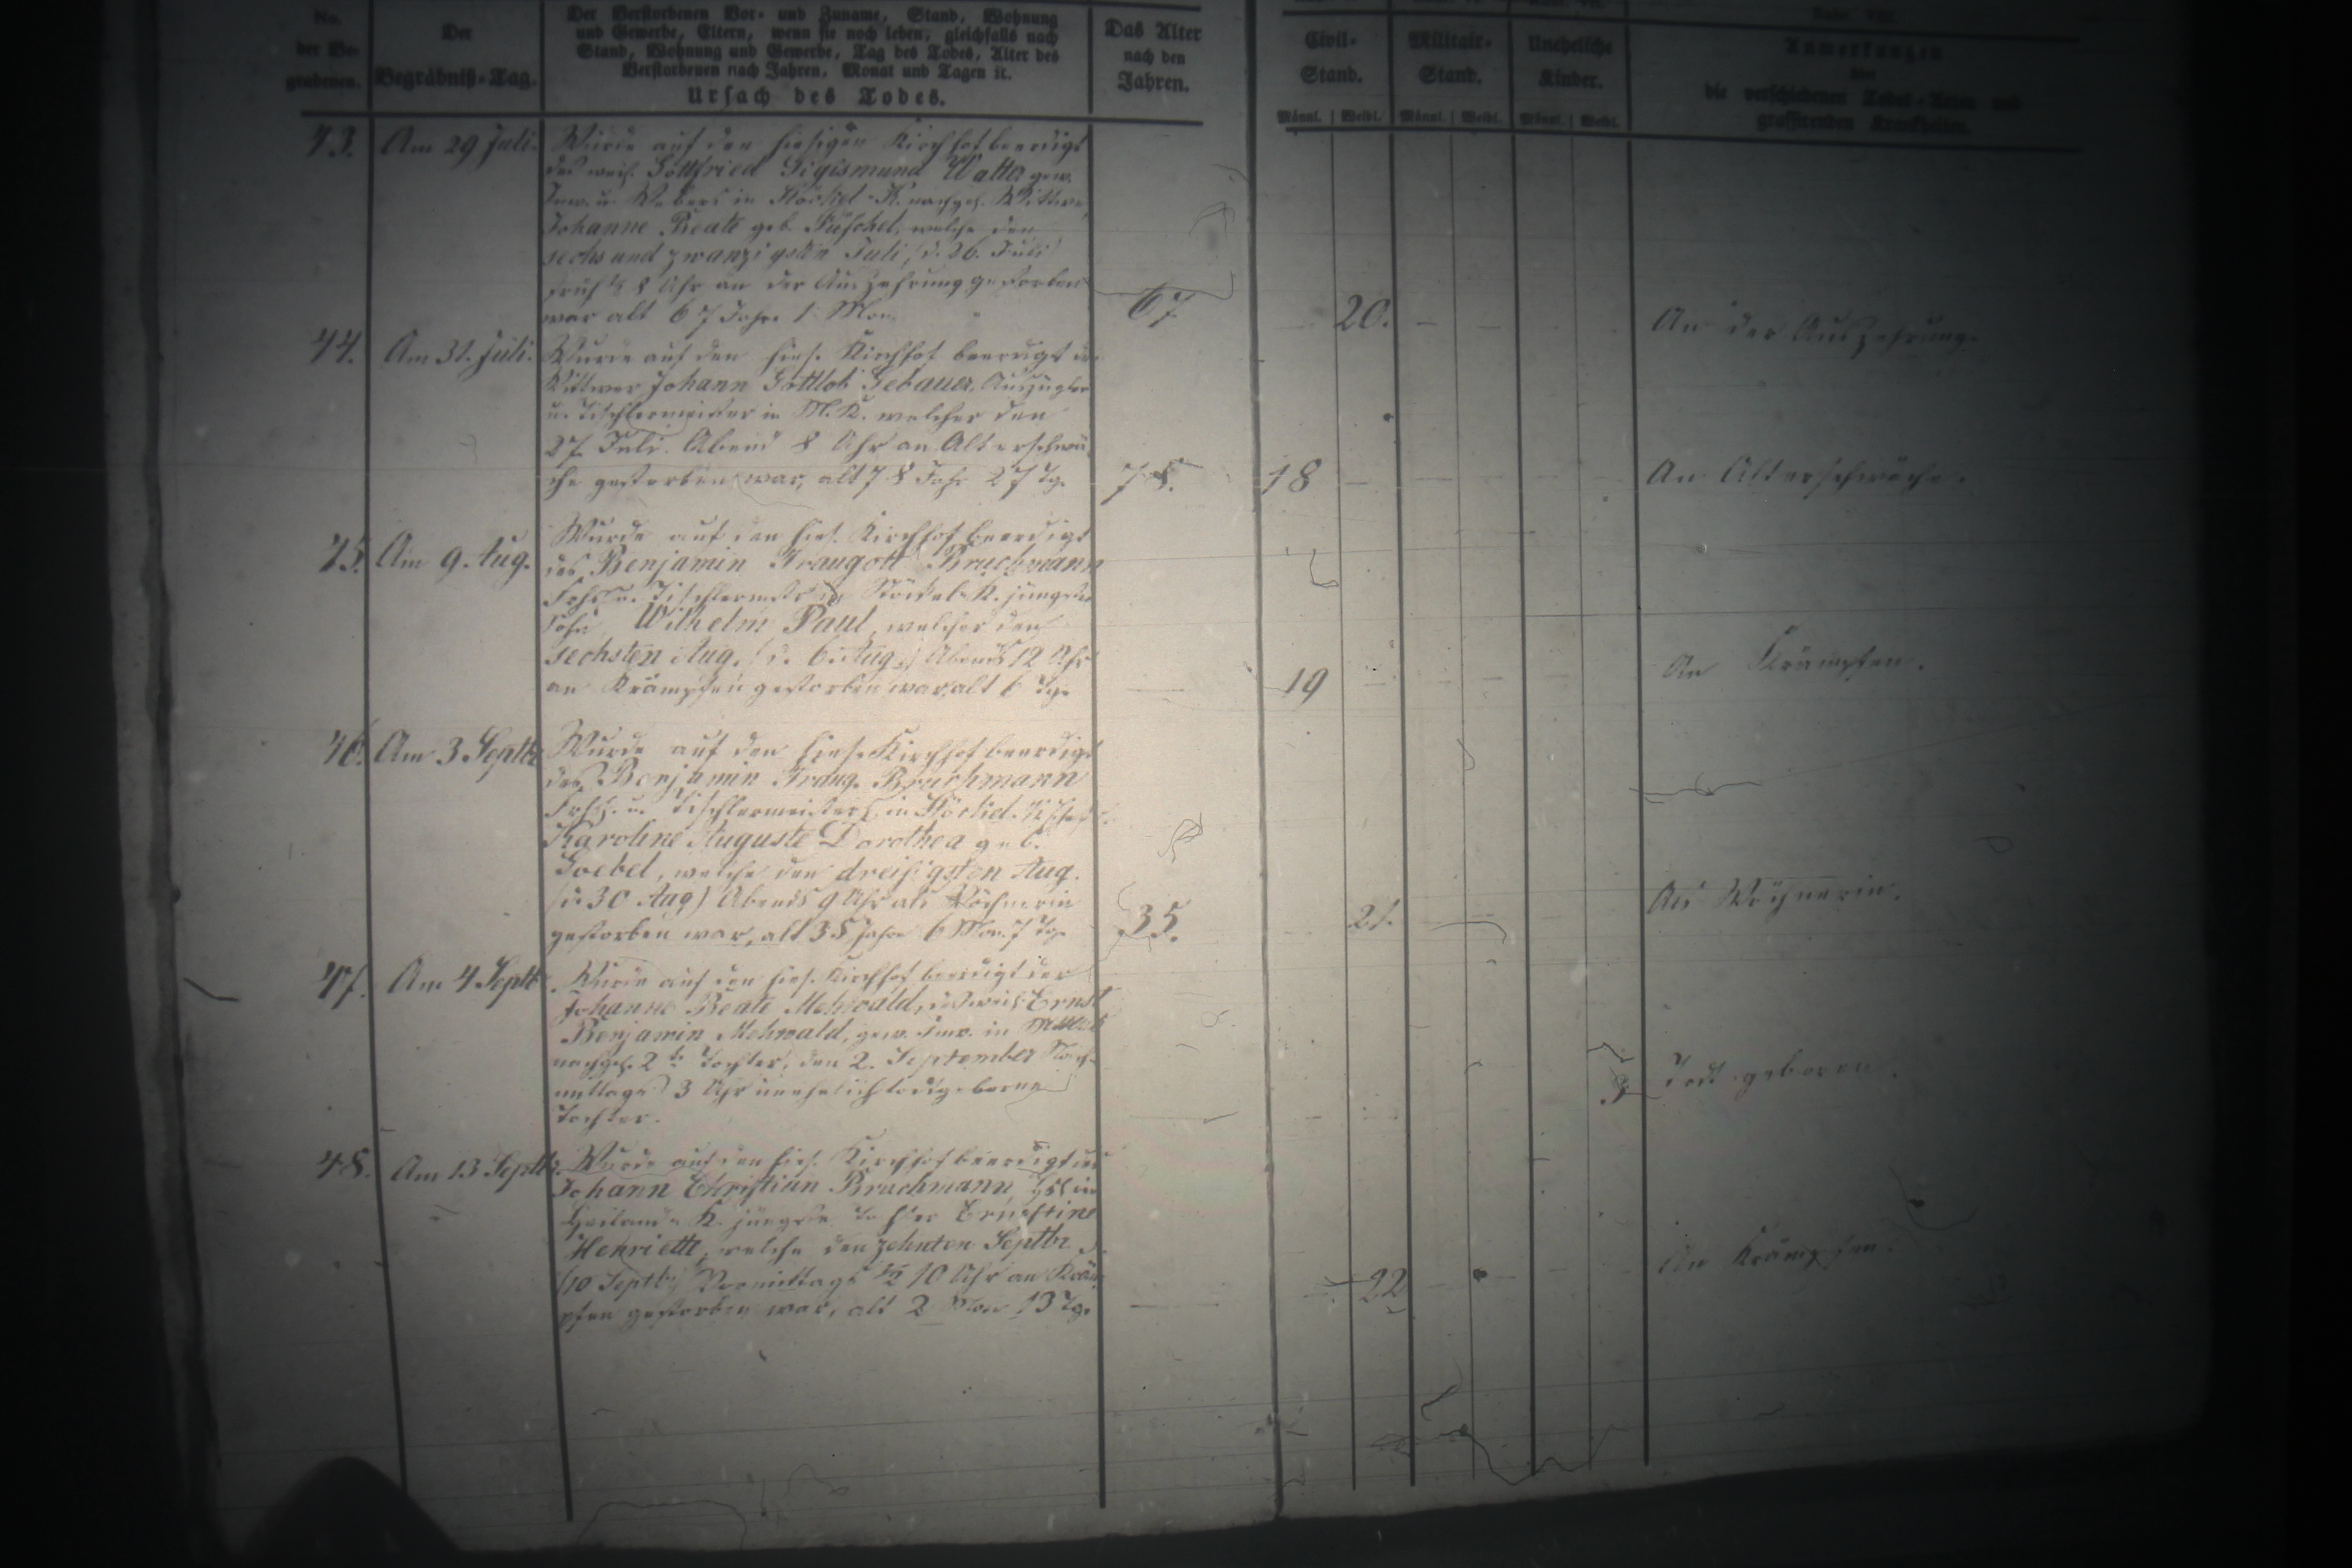 No.
der Be-
grabenen.
Der
Begräbniß-Tag.
Der Verstorbenen Vor- und Zuname, Stand, Wohnung
und Gewerbe, Eltern, wenn sie noch leben, gleichfalls nach
Stand, Wohnung und Gewerbe, Tag des Todes, Alter des
Verstorbenen nach Jahren, Monat und Tagen ꝛc.
Ursach des Todes.
Das Alter
nach den
Jahren.
Civil-
Stand.
Militair-
Stand.
Uneheliche
Kinder.
Anmerkungen
über
die verschiedenen Todes-Arten und
grassirenden Krankheiten.
Männl. Weibl. Männl. Weibl. Männl. Weibl.
43. Am 29 Juli.
Wurde auf den hiesigen Kirchhof beerdigt
des weil. Gottfried Sigismund Walter gew.
Inw. u. Webers in Stöckel-K. nachgel. Wittwe,
Johanne Beate geb. welche den
sechs und zwanzigsten Juli, (d. 26. Juli)
früh 8 Uhr an der Auszehrung gestorben
war alt 67 Jahre 1 Mon.
67 20. An der Auszehrung.
44. Am 31. Juli.
Wurde auf den hies. Kirchhof beerdigt der
Wittwer Johann Gottlob Gebauer, Auszügler
u. Tischlermeister in M. K. welcher den
27. Juli. Abend 8 Uhr an Alterschwä
che gestorben war, alt 78 Jahr 27 Tg.
78. 18 An Alterschwäche.
45. Am 9. Aug.
Wurde auf den hies. Kirchhof beerdigt
des Benjamin Traugott Bruchmann
u. Tischlermstr in Stöckel-K. jüngster
Sohn Wilhelm Paul, welcher den
sechsten Aug. (d. 6. Aug.) Abends 12 Uhr
an Krämpfen gestorben war, alt 6 Tg.
19 An Krämpfen.
46. Am 3 Septbr
Wurde auf den hies. Kirchhof beerdigt
des Benjamin Traug. Bruchmann
u. Tischlermeisters in Stöckel-K.
Karoline Auguste Dorothea geb.
Goebel, welche den dreißigsten Aug.
(d. 30 Aug) Abends 9 Uhr als Wöchnerin
gestorben war, alt 35 Jahre 6 Mon. 7 Tg.
35. 21. Als Wöchnerin.
47. Am 4 Septb
Wurde auf den hies. Kirchhof beerdigt der
Johanne Beate Mehwald, des weil. Ernst
Benjamin Mehwald, gew. Inw. in
nachgel. 2te Tochter, den 2. September Nach-
mittags 3 Uhr unehelich todtgeborne
Tochter.
3 Todt geboren.
48. Am 13 Septbr.
Wurde auf den hies. Kirchhof beerdigt des
Johann Christian Bruchmann, in
K. jüngste Tochter Ernestine
Henriette, welche den zehnten Septbr
(10 Septb) Vormittags 1/2 10 Uhr an Kräm
pfen gestorben war, alt 2 Mon 13 Tg.
22 An Krämpfen.